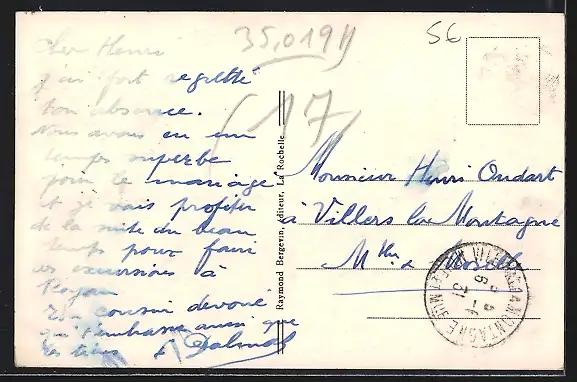 Cher Henri
j'ai fort regretté
ton absence.
Nous avons eu un
temps superbe
pour le mariage
et je vais profiter
de la suite du beau
temps pour faire
des excursions à
Royan
Ton cousin dévoué
qui t'embrasse ainsi que
les tiens
35.019
(17)
56
Raymond Bergevin, éditeur, La Rochelle
Monsieur Henri Oudart
à Villers la Montagne
Mthe & Moselle
LA MONTAGNE
6 - 6
31